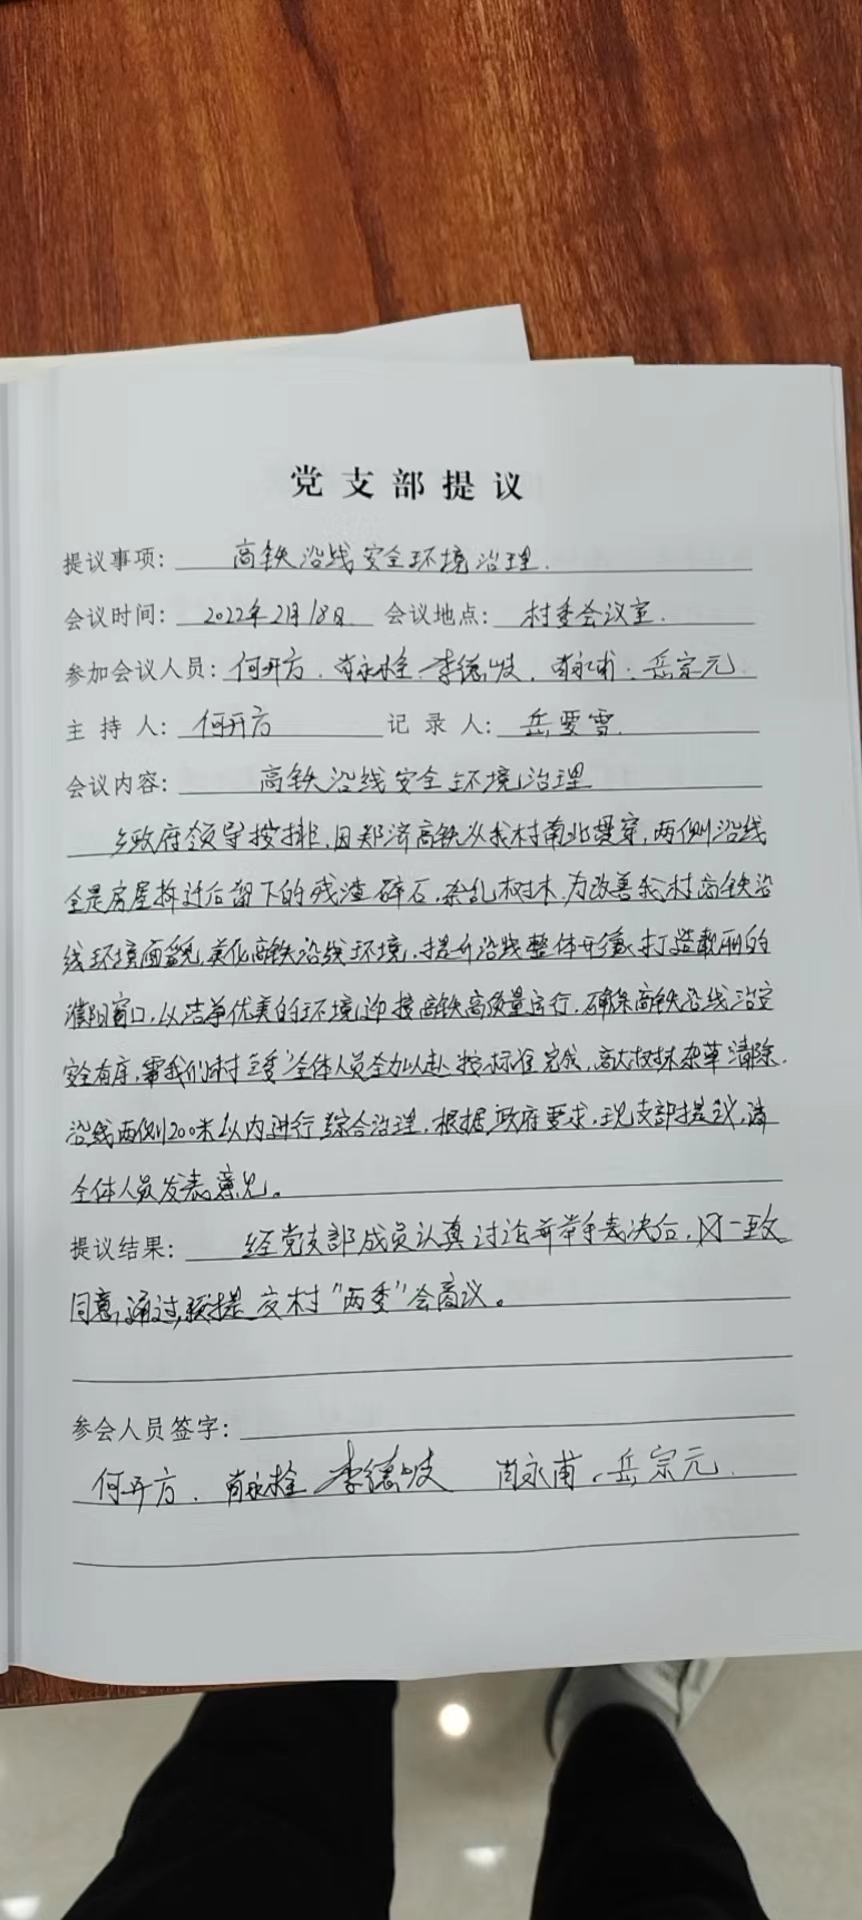 党支部提议
提议事项: 高铁沿线安全环境治理.
会议时间: 2022年2月18日 会议地点: 村委会议室.
参加会议人员: 何开方. 肖永栓. 李德岐. 肖永甫. 岳宗元
主持人: 何开方 记录人: 岳雪.
会议内容: 高铁沿线安全环境治理
乡政府领导按排,因郑济高铁从我村南北贯穿,两侧沿线
全是房屋拆迁后留下的残渣碎石,杂乱树木,为改善我村高铁沿
线环境面貌,美化高铁沿线环境,提升沿线整体形象,打造靓丽的
濮阳窗口,以洁净优美的环境迎接高铁高质量运行,确保高铁沿线治安
安全有序,需我们村全体人员全力以赴按标准完成,高大树木杂草清除.
沿线两侧200米以内进行综合治理.根据政府要求,现支部提议,请
全体人员发表意见。
提议结果: 经党支部成员认真讨论并举手表决后,一致
同意,通过,提交村“两委”会商议。
参会人员签字:
何开方. 肖永栓 李德岐 肖永甫. 岳宗元.